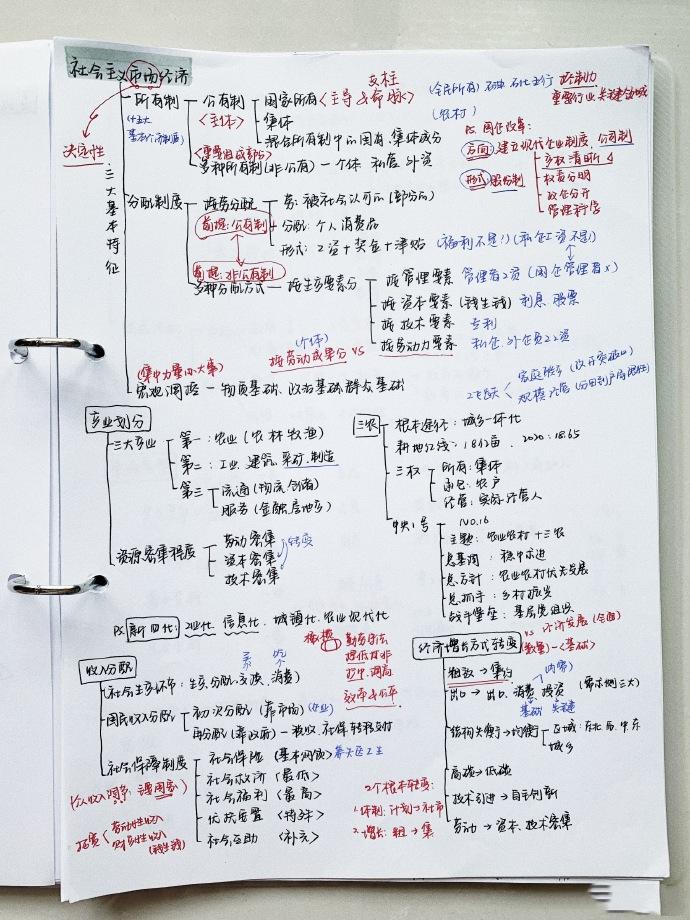 社会主义市场经济
所有制 公有制 国家所有<主导 命脉> 支柱 (全民所有) 控制力
(十五大 基本经济制度) <主体> 集体 (农村) 重要行业 关键领域
混合所有制中的国有、集体成分
<重要组成部分>
多种所有制(非公有)—个体 私营 外资
决定性
三大基本特征
PS.国企改革:
方向 建立现代企业制度、公司制
形式 股份制 产权清晰
权责分明
政企分开
管理科学
分配制度 按劳分配 劳:被社会认可的(部分的)
前提:公有制 分配:个人消费品
形式:工资+奖金+津贴 (福利不是!) (私企工资不是!)
前提:非公有制
多种分配方式—按生产要素分 按管理要素 管理者工资(国企管理者×)
按资本要素(钱生钱) 利息、股票
按技术要素 专利
按劳动力要素 私企、外企员工工资
(个体)
按劳动成果分 VS
(集中力量办大事)
宏观调控—物质基础、政治基础、群众基础
2飞跃 家庭联产(改革突破口)
规模经营
产业划分
三大产业 第一:农业(农林牧渔)
第二:工业、建筑、采矿、制造
第三 流通(物流、仓储)
服务(金融、房地产)
资源密集程度 劳动密集
资本密集 转变
技术密集
三农 根本途径:城乡一体化
耕地红线:18亿亩、2020:18.65
三权 所有:集体
承包:农户
经营:实际经营人
中央1号 NO.16
主题:农业农村+三农
总基调:稳中求进
总方针:农业农村优先发展
总抓手:乡村振兴
战斗堡垒:基层党组织
PS.新四化:工业化、信息化、城镇化、农业现代化
收入分配
社会生产环节:生产、分配、交换、消费
国民收入分配 初次分配(靠市场)(企业)
再分配(靠政府)—税收、社保、转移支付
橄榄 勤劳守法
提低扩非
扩中、调高
效率与公平
社会保障制度 社会保险(基本纲领)
社会救济<最低>
社会福利<最高>
优抚安置<特殊>
社会互助<补充>
个人收入 国家
拓宽 劳动性收入
财产性收入
(钱生钱)
2个根本转变:
1.体制:计划→社市
2.增长:粗→集
经济增长方式转变 VS 经济发展(全面)
(数量)—<基础>
粗放→集约
出口→出口、消费、投资 (需求侧三大)
(内需)
基础 关键
结构失衡→均衡 区域:东北西中东
城乡
高碳→低碳
技术引进→自主创新
劳动→资本、技术密集